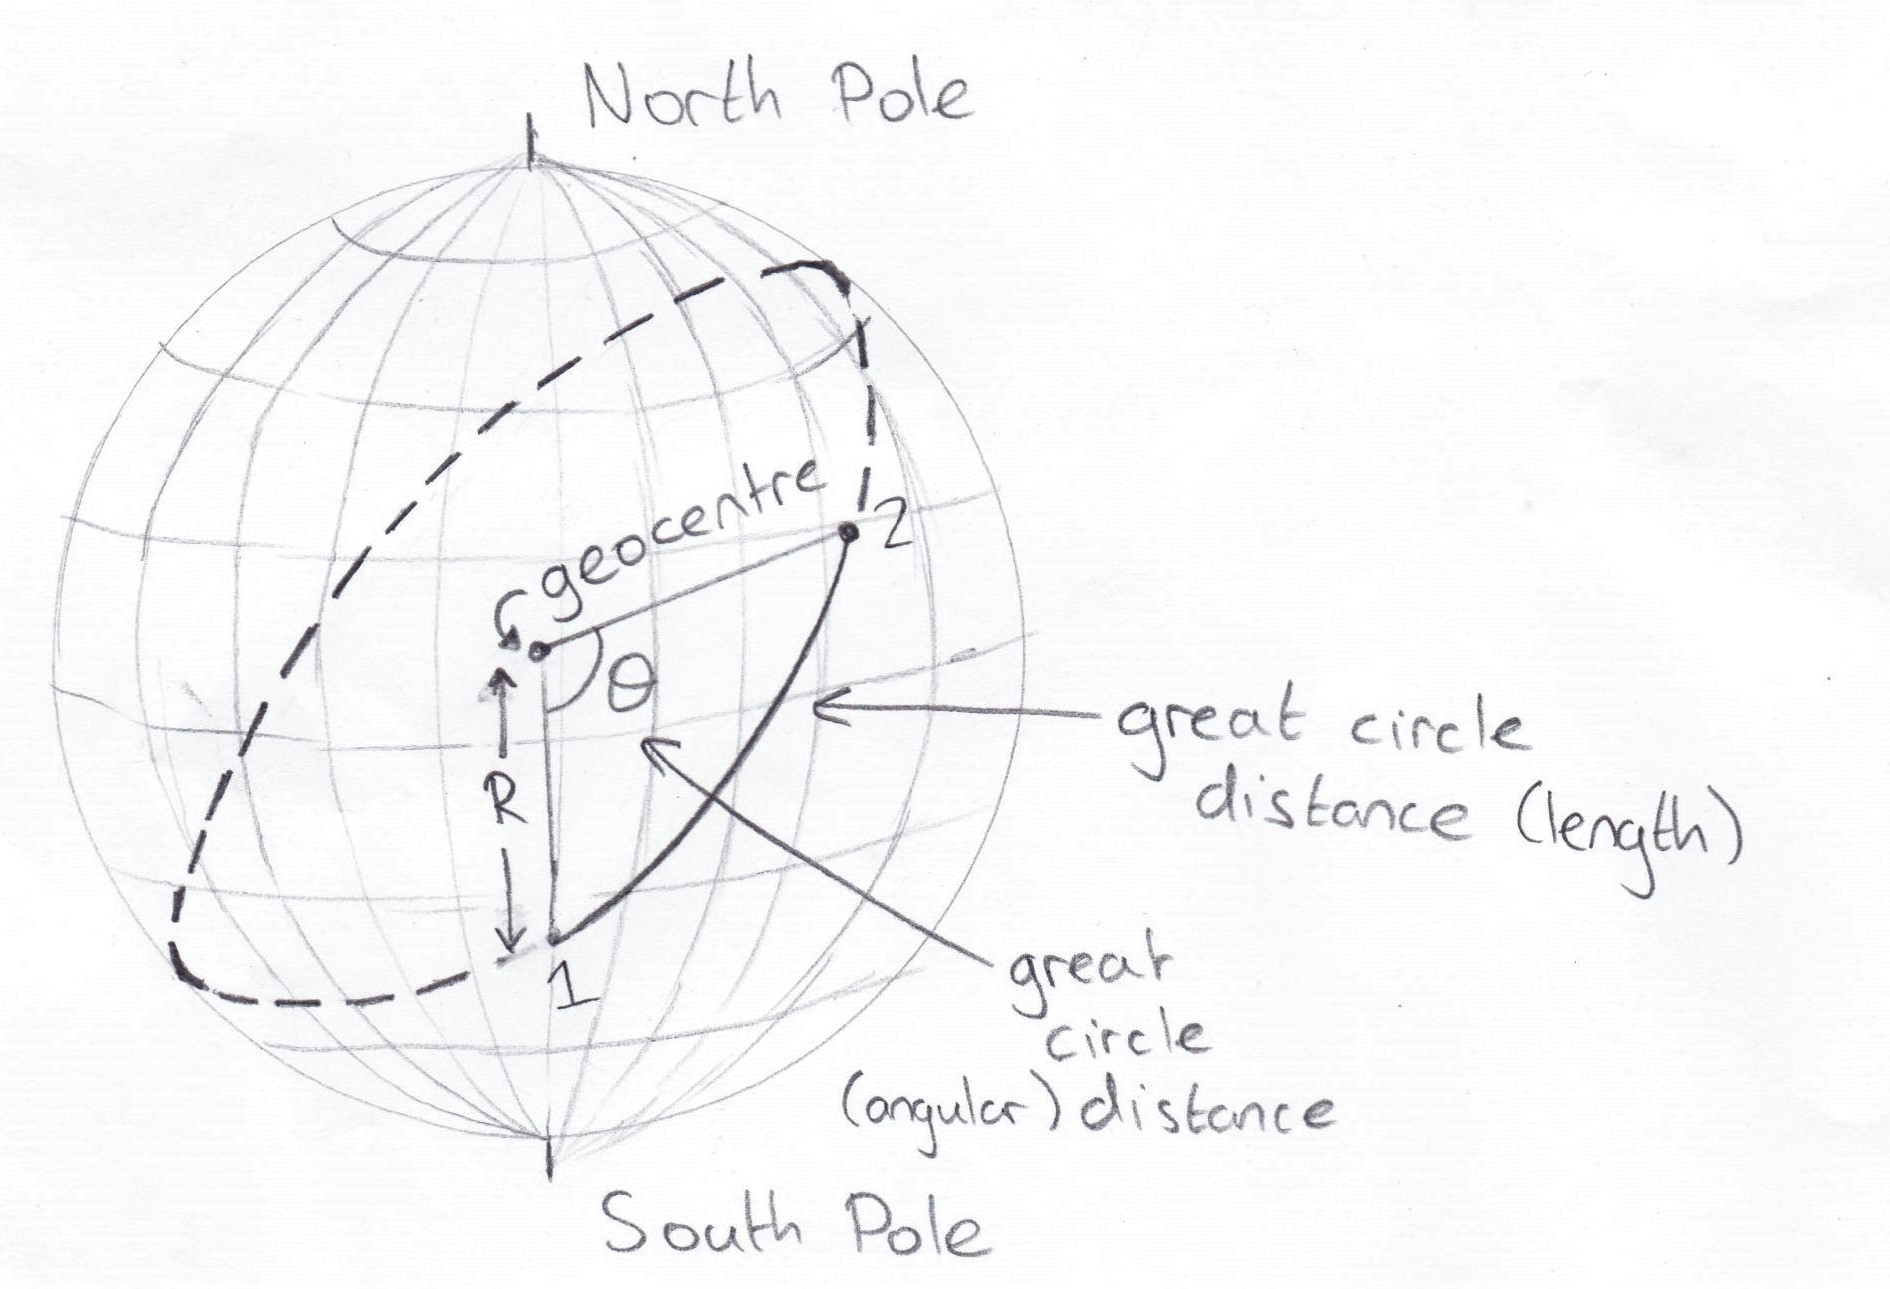 North Pole
geocentre
2
θ
R
great circle
distance (length)
1
great
circle
(angular) distance
South Pole